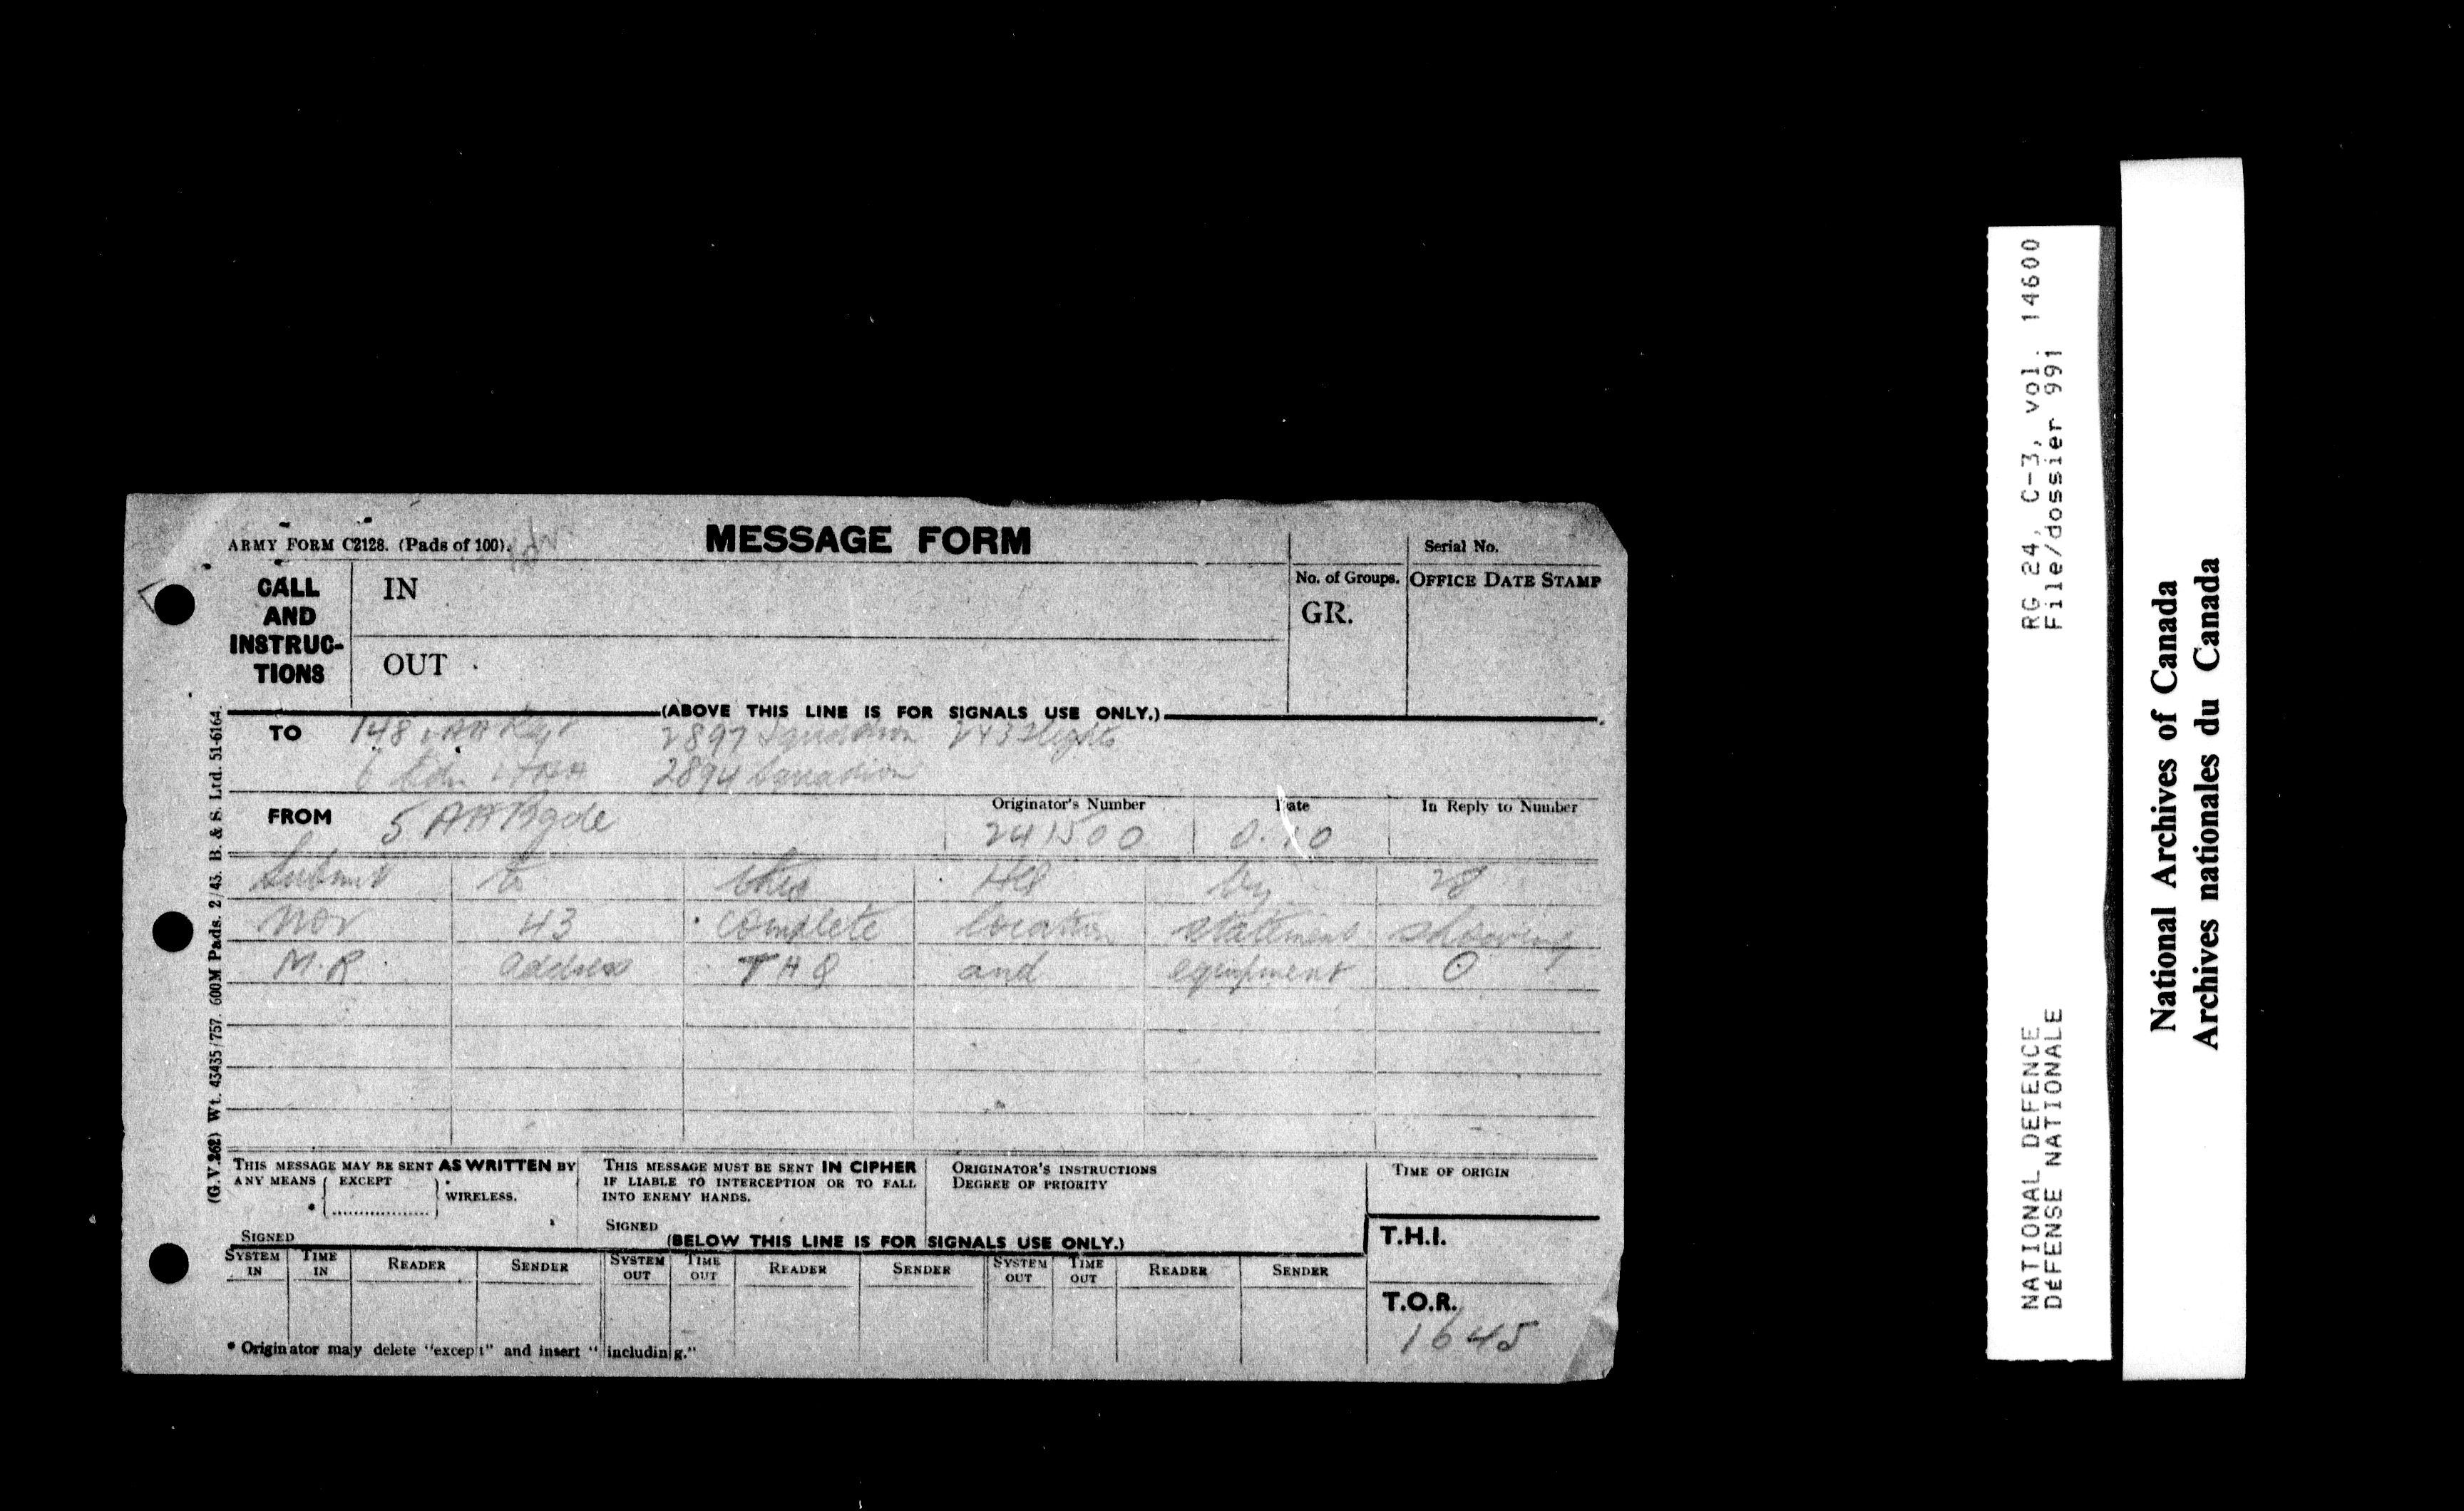 ARMY FORM C2128. (Pads of 100).
MESSAGE FORM
Serial No.
CALL AND INSTRUC-TIONS
IN
OUT
No. of Groups.
GR.
OFFICE DATE STAMP
(ABOVE THIS LINE IS FOR SIGNALS USE ONLY.)
TO 148 2897 Squadron 243 Flights
6 2894 Squadron
FROM 5 AA Bgde
Originator's Number 241500
Date
In Reply to Number
Submit to this HQ by 28
Nov 43 complete location statement showing
M.R. address THQ and equipment
(G.V.262) Wt. 43435/757. 600M Pads. 2/43. B. & S. Ltd. 51-6164.
THIS MESSAGE MAY BE SENT AS WRITTEN BY
ANY MEANS EXCEPT
WIRELESS.
SIGNED
THIS MESSAGE MUST BE SENT IN CIPHER
IF LIABLE TO INTERCEPTION OR TO FALL
INTO ENEMY HANDS.
SIGNED
ORIGINATOR'S INSTRUCTIONS
DEGREE OF PRIORITY
TIME OF ORIGIN
(BELOW THIS LINE IS FOR SIGNALS USE ONLY.)
T.H.I.
SYSTEM IN TIME IN READER SENDER SYSTEM OUT TIME OUT READER SENDER SYSTEM OUT TIME OUT READER SENDER
T.O.R.
1645
* Originator may delete "except" and insert "including."
RG 24, C-3, vol. 14600
File/dossier 991
NATIONAL DEFENCE
DÉFENSE NATIONALE
National Archives of Canada
Archives nationales du Canada